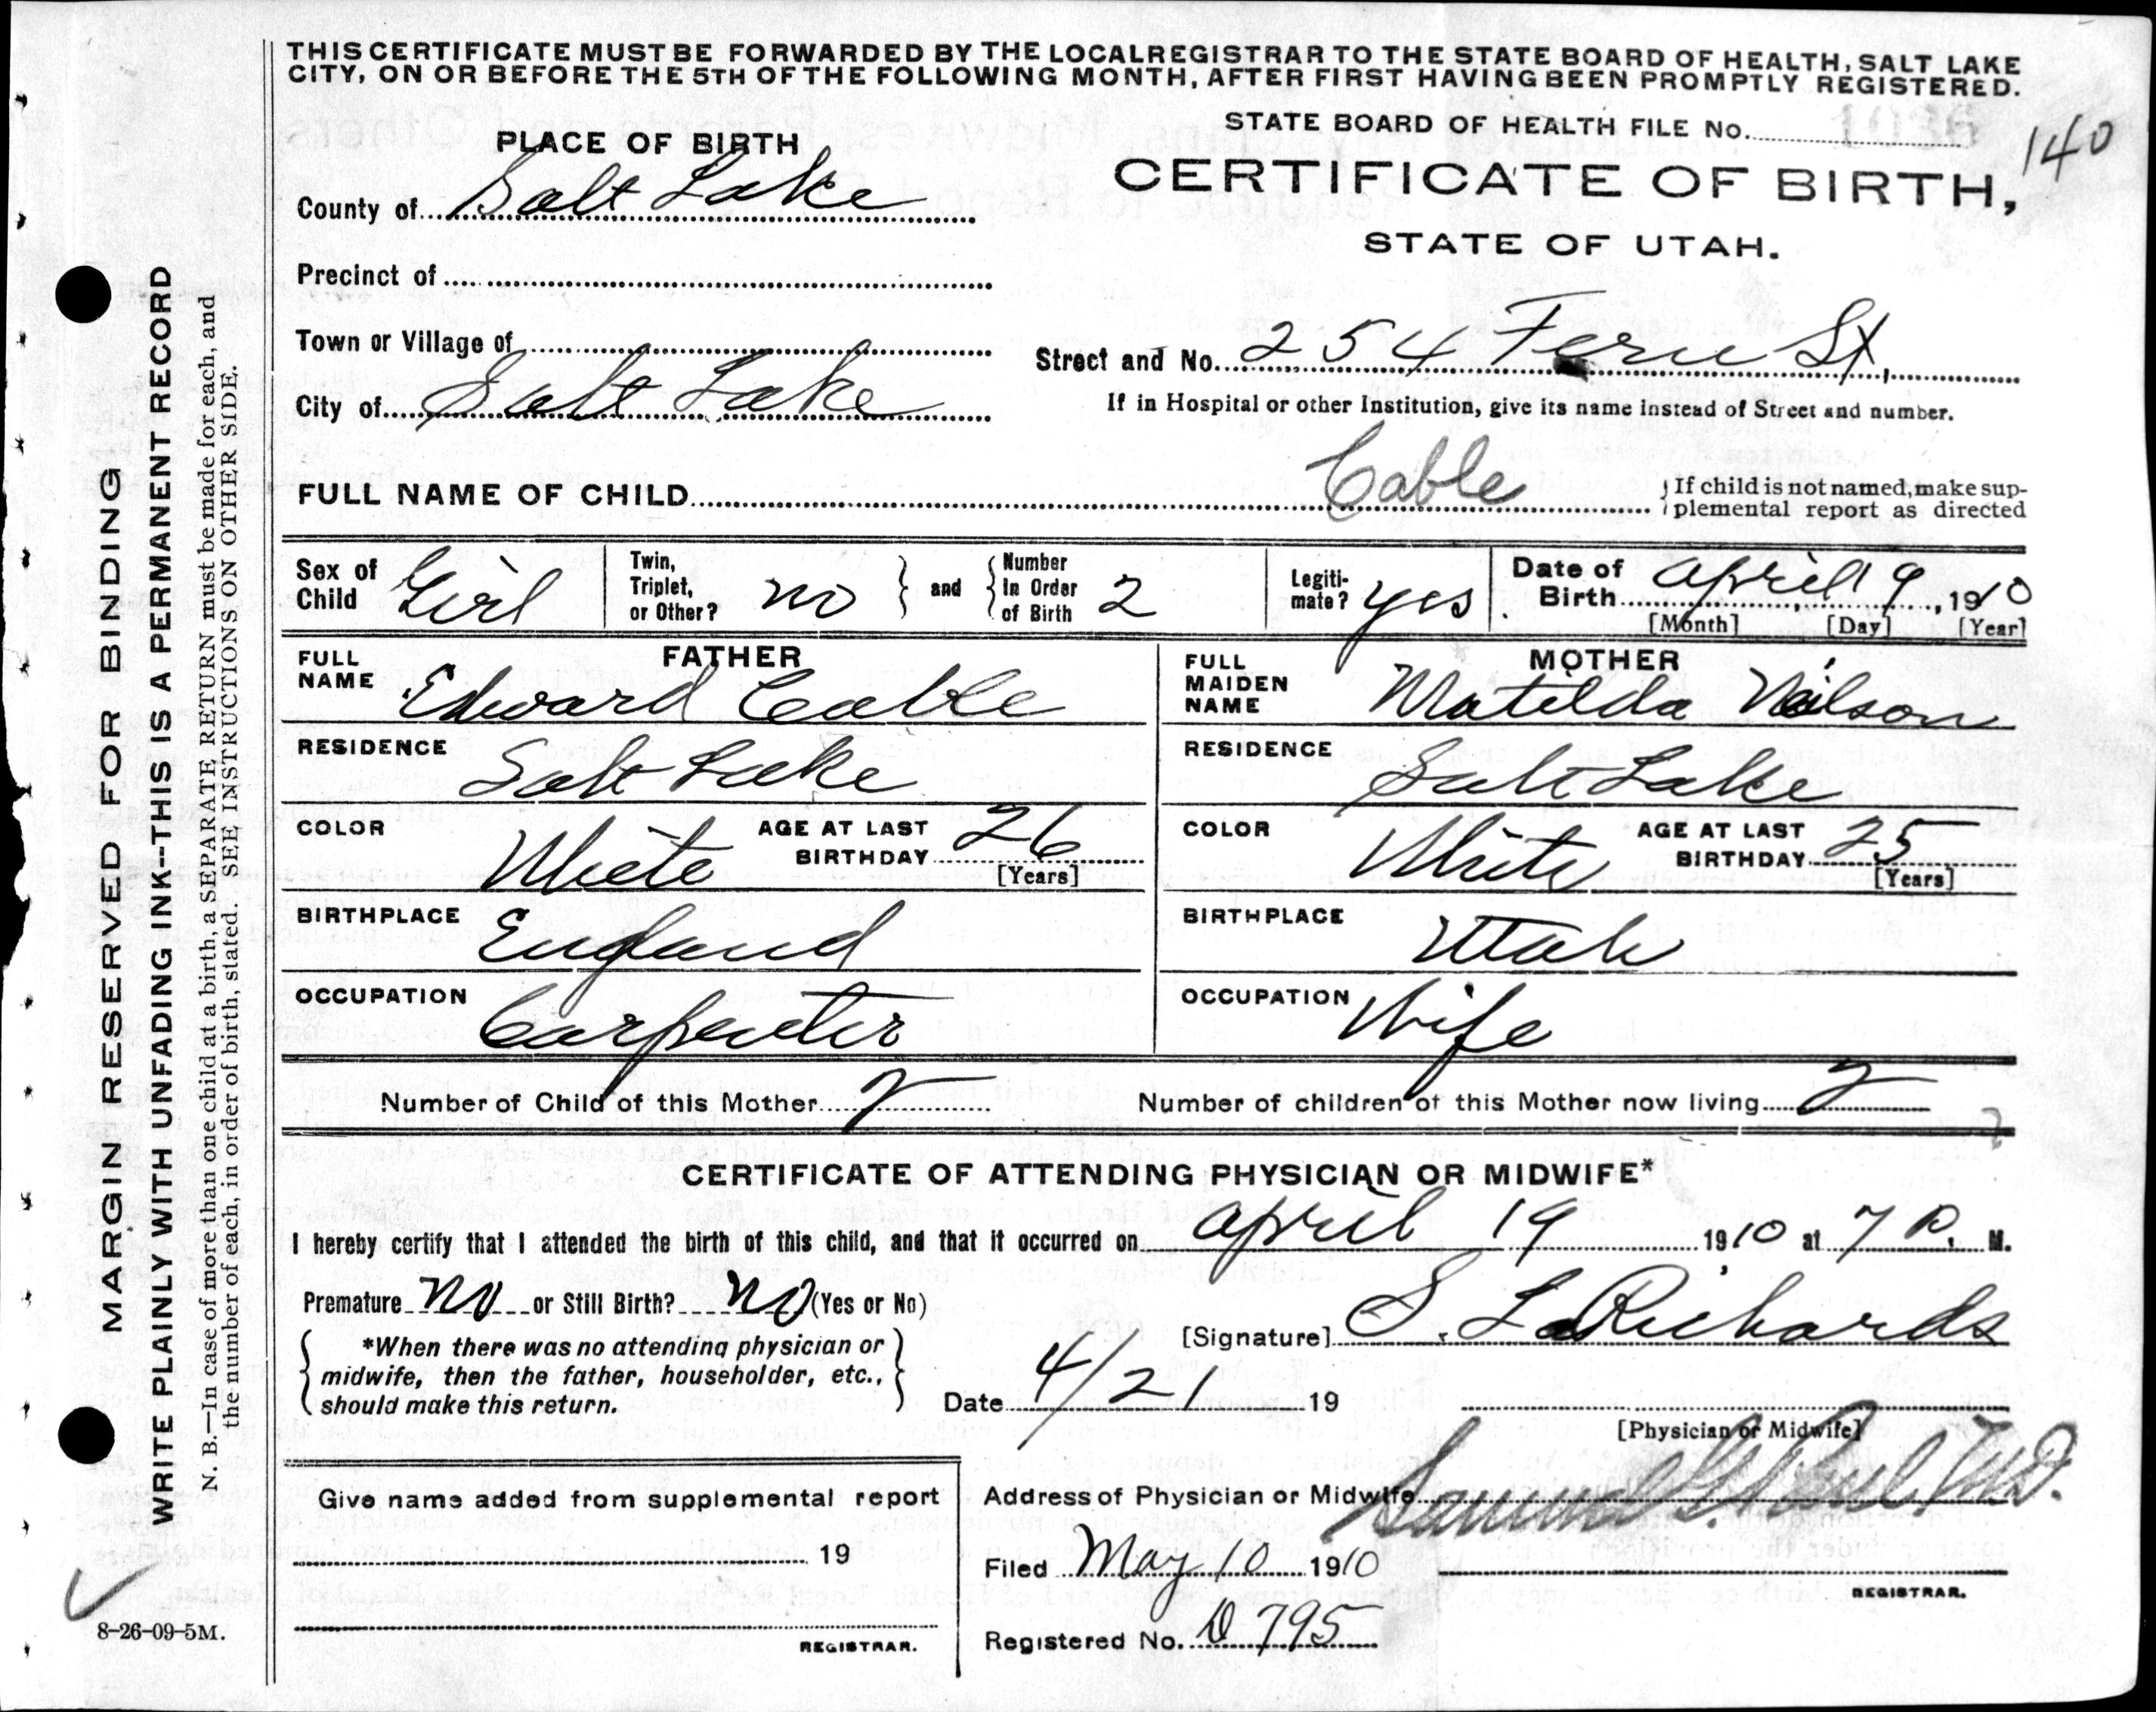 THIS CERTIFICATE MUST BE FORWARDED BY THE LOCAL REGISTRAR TO THE STATE BOARD OF HEALTH, SALT LAKE
CITY, ON OR BEFORE THE 5TH OF THE FOLLOWING MONTH, AFTER FIRST HAVING BEEN PROMPTLY REGISTERED.
STATE BOARD OF HEALTH FILE No. 140
PLACE OF BIRTH
CERTIFICATE OF BIRTH,
County of Salt Lake
STATE OF UTAH.
Precinct of
Town or Village of
Street and No. 254 Fern St.
City of Salt Lake
If in Hospital or other Institution, give its name instead of Street and number.
FULL NAME OF CHILD Cable
If child is not named, make sup-
plemental report as directed
Sex of Child Girl
Twin, Triplet, or Other? no and Number in Order of Birth 2
Legiti-mate? yes
Date of Birth April 19, 1910
[Month] [Day] [Year]
FATHER
FULL NAME Edward Cable
RESIDENCE Salt Lake
COLOR White AGE AT LAST BIRTHDAY 26 [Years]
BIRTHPLACE England
OCCUPATION Carpenter
MOTHER
FULL MAIDEN NAME Matilda Neilson
RESIDENCE Salt Lake
COLOR White AGE AT LAST BIRTHDAY 25 [Years]
BIRTHPLACE Utah
OCCUPATION Wife
Number of Child of this Mother 2 Number of children of this Mother now living 2
2
CERTIFICATE OF ATTENDING PHYSICIAN OR MIDWIFE*
I hereby certify that I attended the birth of this child, and that it occurred on April 19 1910 at 7 P. M.
Premature No or Still Birth? No (Yes or No)
[Signature] S. L. Richards
*When there was no attending physician or
midwife, then the father, householder, etc.,
should make this return.
Date 4/21 19
[Physician or Midwife]
Give name added from supplemental report
19
REGISTRAR.
Address of Physician or Midwife
Samuel G. Paul, M.D.
Filed May 10 1910
REGISTRAR.
Registered No. D 795
MARGIN RESERVED FOR BINDING
WRITE PLAINLY WITH UNFADING INK--THIS IS A PERMANENT RECORD
N. B.—In case of more than one child at a birth, a SEPARATE RETURN must be made for each, and
the number of each, in order of birth, stated. SEE INSTRUCTIONS ON OTHER SIDE.
8-26-09-5M.